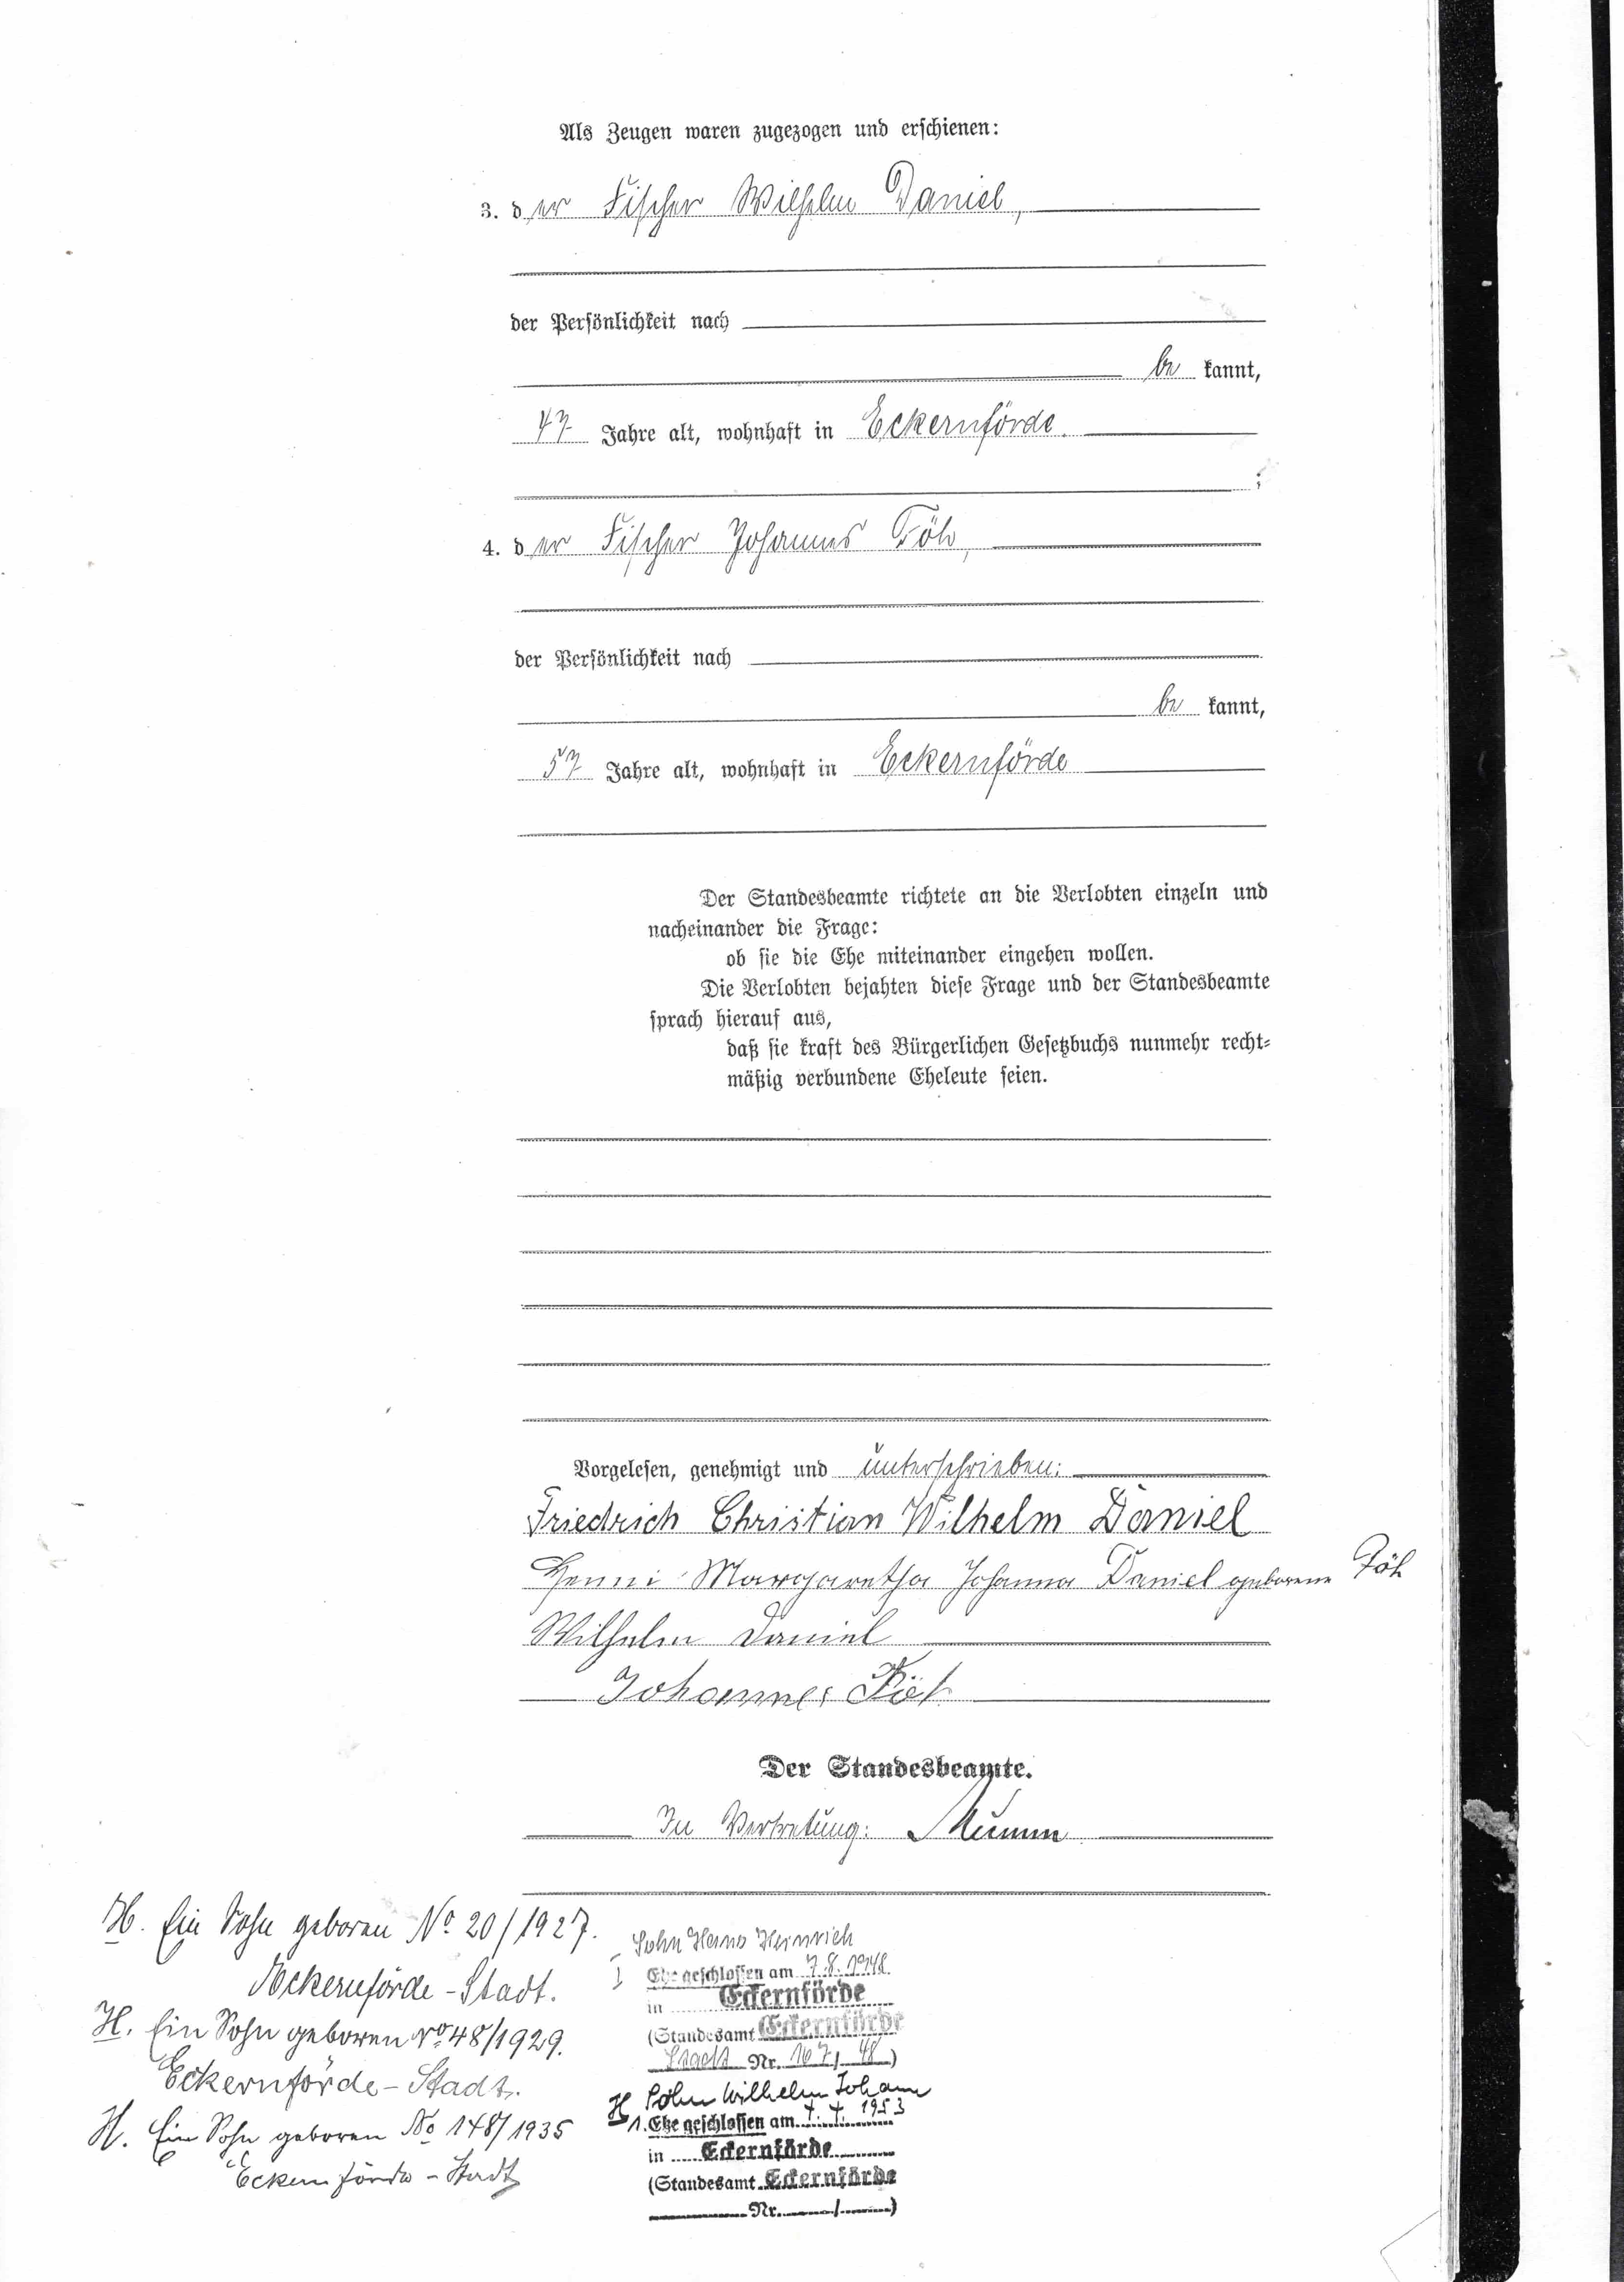 Als Zeugen waren zugezogen und erschienen:
3. der Fischer Wilhelm Daniel,
der Persönlichkeit nach
be kannt,
47 Jahre alt, wohnhaft in Eckernförde.
;
4. der Fischer Johannes Föh,
der Persönlichkeit nach
be kannt,
57 Jahre alt, wohnhaft in Eckernförde
Der Standesbeamte richtete an die Verlobten einzeln und
nacheinander die Frage:
ob sie die Ehe miteinander eingehen wollen.
Die Verlobten bejahten diese Frage und der Standesbeamte
sprach hierauf aus,
daß sie kraft des Bürgerlichen Gesetzbuchs nunmehr recht-
mäßig verbundene Eheleute seien.
Vorgelesen, genehmigt und unterschrieben:
Friedrich Christian Wilhelm Daniel
Henni Margaretha Johanna Daniel geborene Föh
Wilhelm Daniel
Johannes Föh
Der Standesbeamte.
In Vertretung: Mumm
H. Ein Sohn geboren No 20/1927.
Eckernförde-Stadt.
H. Ein Sohn geboren No 48/1929.
Eckernförde-Stadt.
H. Ein Sohn geboren No 148/1935
Eckernförde-Stadt
Sohn Hans Heinrich
Ehe geschlossen am 7.8.1948
in Eckernförde
(Standesamt Eckernförde
Stadt Nr. 107/48)
H Sohn Wilhelm Johann
1. Ehe geschlossen am 4.4.1953
in Eckernförde
(Standesamt Eckernförde
Nr. / )